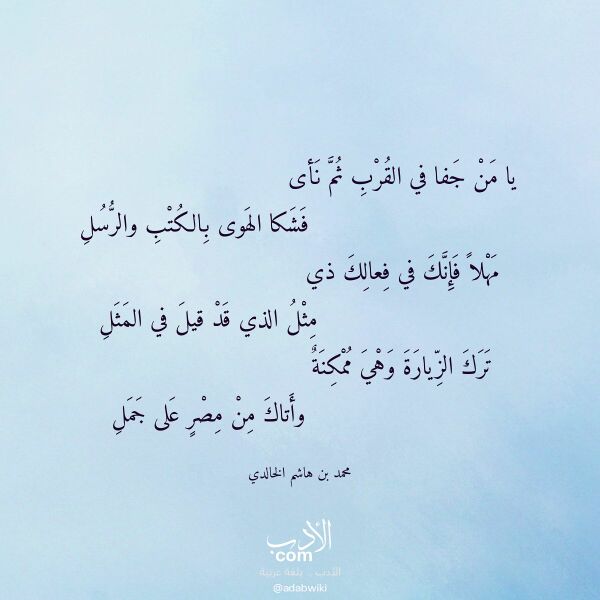 يا مَنْ جَفا في القُرْبِ ثُمَّ نَأى
فَشَكا الهَوى بِالكُتْبِ والرُّسُلِ
مَهْلاً فَإِنَّكَ في فِعالِكَ ذي
مِثْلُ الذي قَدْ قيلَ في المَثَلِ
تَرَكَ الزِّيارَةَ وَهْيَ مُمْكِنَةٌ
وأَتاكَ مِنْ مِصْرٍ عَلى جَمَلِ
محمد بن هاشم الخالدي
الأدب
com
الأدب .. بلغة عربية
@adabwiki